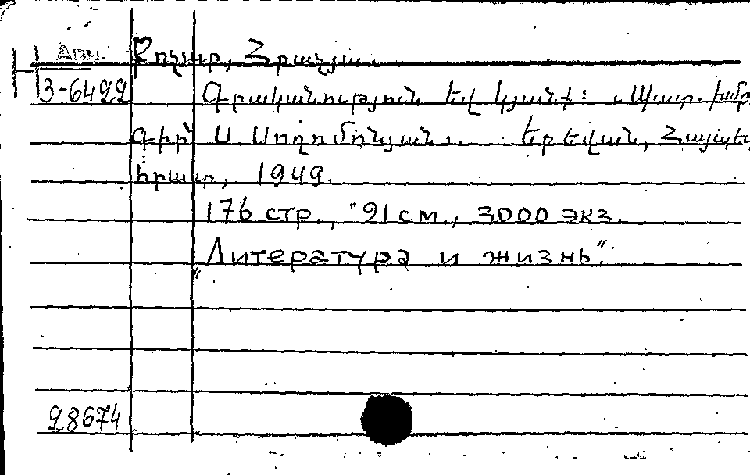 Քոչար, Հրաչյա.
3-6422
Գրականություն եվ կյանք: Պատ. խմբ
գիր՝ Ս. Սողոմոնյան. Երեվան, Հայպետ
հրատ, 1949.
176 стр., 21 см., 3000 экз.
„Литература и жизнь“.
28674